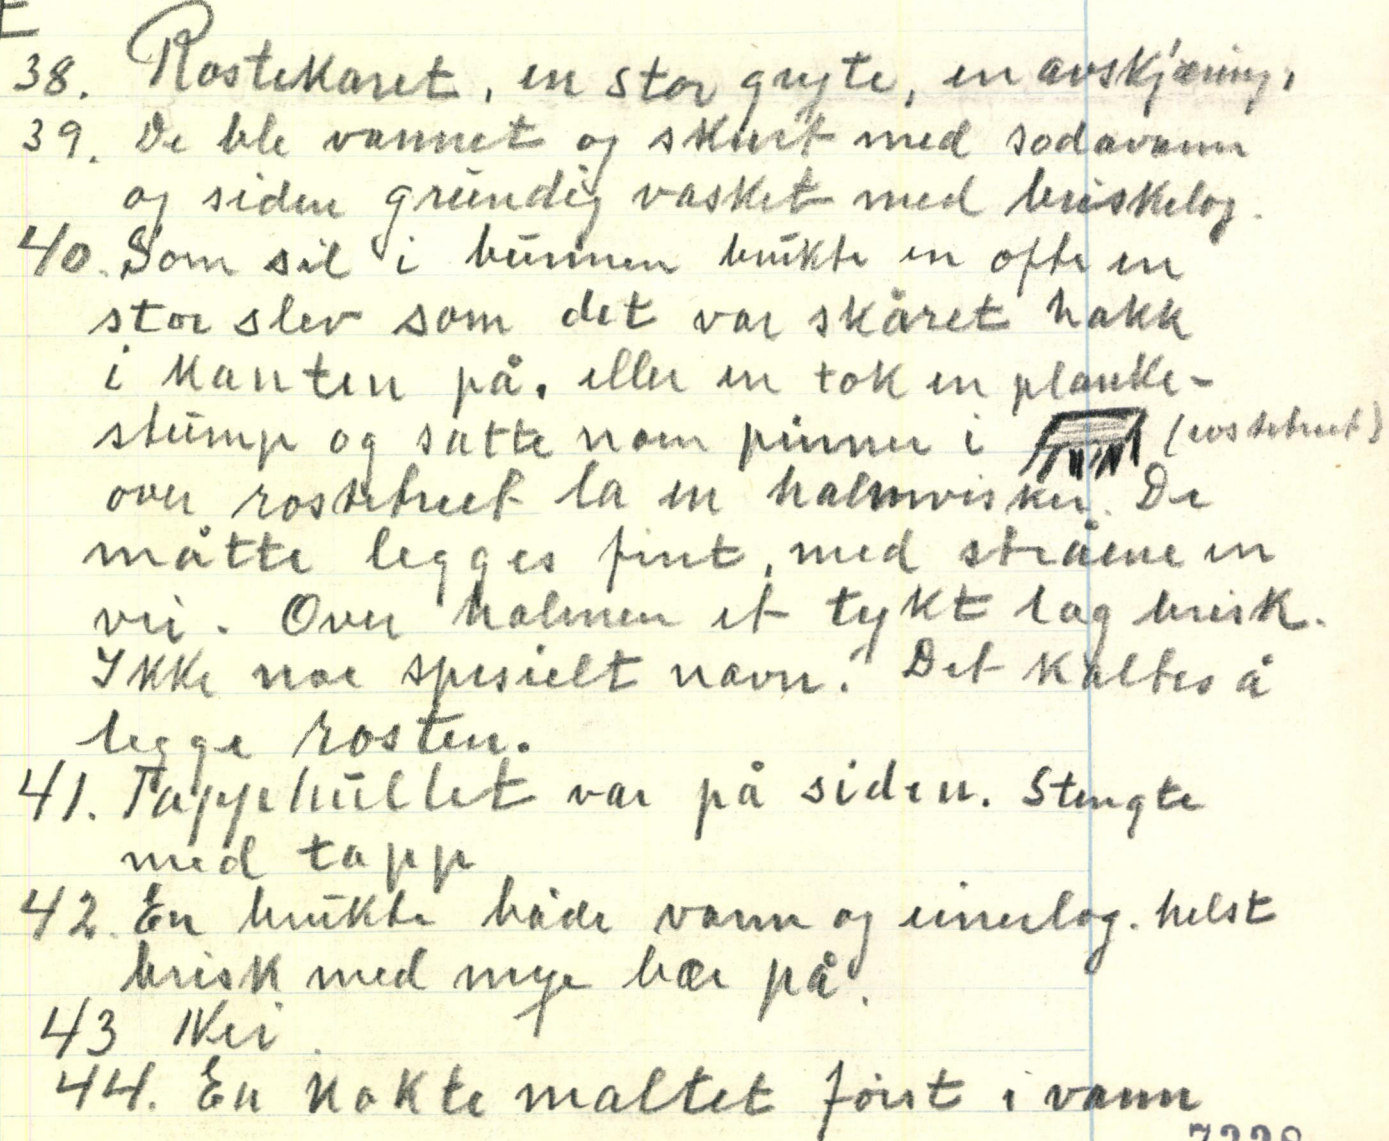 38. Rostekaret, en stor gryte, en avskjæring,
39. De ble vannet og skurt med sodavann
og siden grundig vasket med briskelog.
40. Som sil i bunnen brukte en ofte en
stor slev som det var skåret hakk
i kanten på. eller en tok en planke-
stump og satte noen pinner i (rostetreet)
over rostetreet la en halmvisker. De
måtte legges fint, med stråene en
vei. Over halmen et tykt lag brisk.
Ikke noe spesielt navn. Det kaltes å
legge rosten.
41. Tappehullet var på siden. Stengte
med tapp
42. En brukte både vann og einerlog. helst
brisk med mye bær på.
43 Nei
44. En kokte maltet først i vann